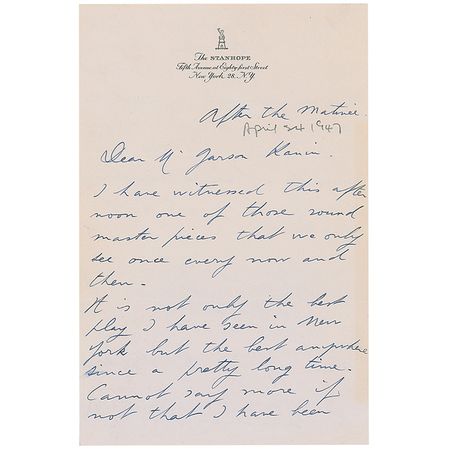 The STANHOPE
Fifth Avenue at Eighty-first Street
New York 28, N.Y.
After the Matinée.
April 24 1947
Dear Mr Garson Kanin.
I have witnessed this after
noon one of those round
master pieces that we only
see once every now and
then.
It is not only the best
play I have seen in New
York but the best anywhere
since a pretty long time.
Cannot say more if
not that I have been